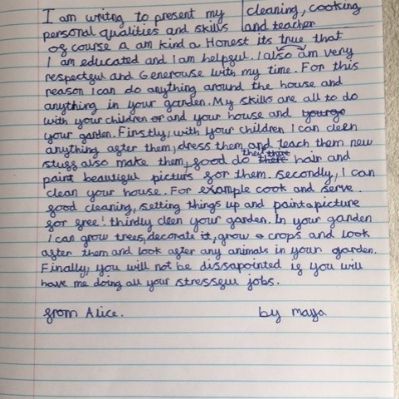 I am writing to present my
personal qualities and skills
cleaning, cooking
and teacher
of course a am kind a Honest its true that
I am educated and I am helpful. I also am very
respectful and Generouse with my time. For this
reason I can do anything around the house and
anything in your garden. My skills are all to do
with your children or and your house and
your garden. Firstly, with your children I can cleen
anything after them, dress them and teach them new
stuff also make them, food do their hair and
paint beautiful picturs for them. secondly, I can
clean your house. For example cook and serve.
good cleaning, setting things up and paint a picture
for free! thirdly cleen your garden. In your garden
I can grow trees, decorate it, grow crops and look
after them and look after any animals in your garden.
Finally, you will not be dissapointed if you will
have me doing all your stressful jobs.
from Alice. by maya